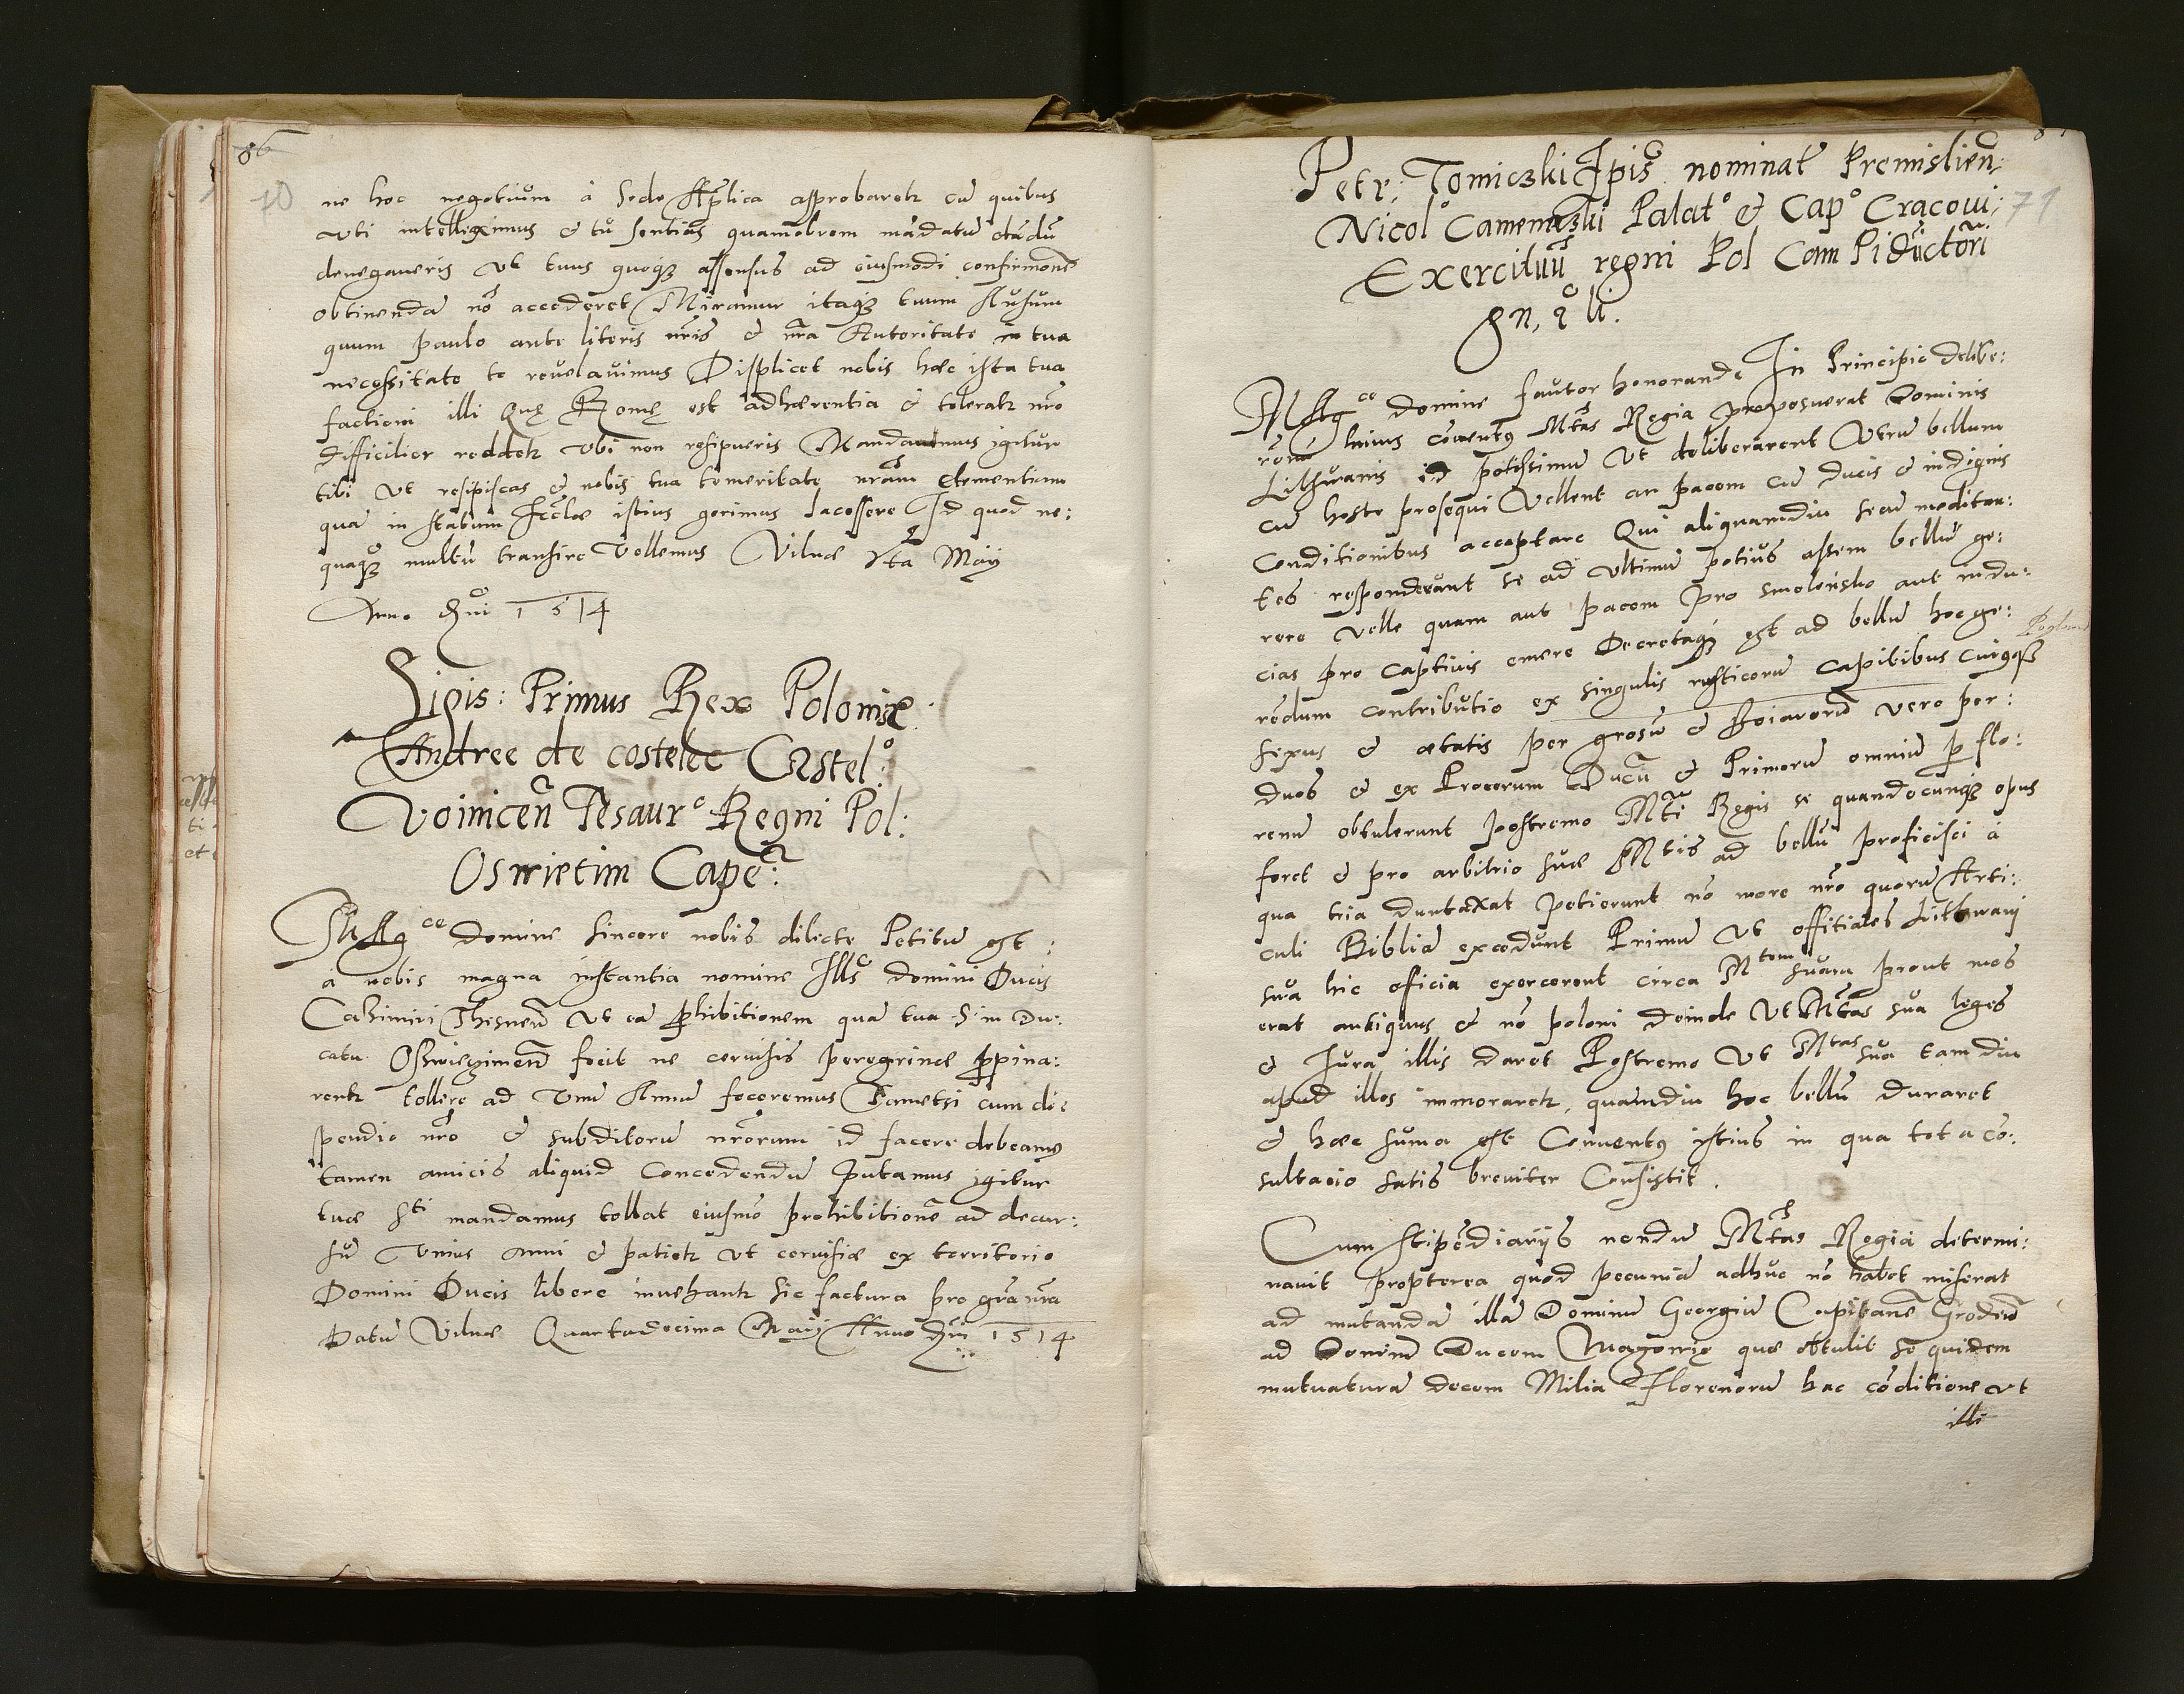 86
70
ne hoc negotium à Sede Aplica approbaretr cū quibus
uti intelleximus & tū sentias quamobrem mādatū dādū
denegaveris Ut tuus quoqꝫ assensus ad eiusmodi confirmone
obtinendā nō accederet Miramur itaqꝫ tuum Ausum
quum paulo ante literis nris & nra Autoritate in tua
necessitate te revelavimus Displicet nobis hæc ista tua
factioni illi Quę Romę est adhærentia & toleratr nro
difficilior reddetr Ubi non resipueris Mandamus igitur
tibi Ut resipiscas & nobis tua temeritate nram Clementiam
qua in statum Ecclæ istius gerimus lacessere Id quod ne:
quaqꝫ multū transire Vellemus Vilnæ xta Maÿ
Anno Dni 1514
Sigis: Primus Rex Poloniæ
Andree de costelec Castelo:
Voinicen Tesaur Regni Pol:
Oswietim Cape:
Mag ce Domine Sincere nobis dilecte Petitū est
à nobis magna instantia nomine Ills Domini Ducis
Casimiri Thesnen Ut eā phibitionem quā tua S: in Du:
catu Osswieczimen fecit ne cervisiæ peregrinæ ppina:
rentr tollere ad Unū Annū feceremus Tametsi cum dis
pendio nro & subditorū nrorum id facere debeamꝰ
tamen amicis aliquid Concedendū Putamus igitur
tuæ Sti mandamus tollat eiusmo prohibitionē ad decur:
sū Unius anni & patietr Ut cervisiæ ex territorio
Domini Ducis libere invehantr Sic factura pro gra nra
Datū Vilnæ Quartadecima Maÿ Anno Dni 1514
71
Petr: Tomiczki Epis nominat Premislien:
Nicolo Camenieczki Palato & Capo Cracovi:
Exercituū regni Pol Cam Pi ductori
gn, a li.
Mag ce Domine fautor honorande In Principio delibe:
rōnū huius cōventꝰ Mtas Regia proposuerat Dominis
Lithuanis id potissimū Ut deliberarent Utrū bellum
cū hoste prosequi Vellent an pacem cū ducis & indignis
Conditionibus acceptare Qui aliquamdiu secū meditan:
tes responderunt se ad ultimū potius assem bellū ge:
rere velle quam aut pacem pro Smolensko aut indu:
cias pro captivis emere Decretaqꝫ est ad bellū hoc ge:
rēdum contributio ex singulis rusticorū capitibus cuiꝰqꝫ
sexus & ætatis per grosū & Boiarorū vero per:
duos & ex Procerum Ducū & Primorū omniū p flo:
renū obtulerunt postremo Mti Regis se quandocunqꝫ opus
foret & pro arbitrio suæ Mtis ad bellū proficisci à
qua tria duntaxat petierunt nō more nro quorū Arti:
culi Bibliā excedunt Primū Ut offitiales Littwani
sua hic officia exercerent circa Mtem suam prout mos
erat antiquus & nō poloni deinde Ut Mtas sua leges
& Jura illis daret Postremo Ut Mtas sua tam diu
apud illos immoraretr, quamdiu hoc bellū duraret
& hæc suma est Conventꝰ istius in qua tota cō:
sultacio satis breviter Consistit.
Cum stipēdiarÿs nondū Mtas Regia determi:
navit propterea quod pecuniā adhuc nō habet miserat
ad mutandā illā Dominū Georgiū Capitane Groden
ad Dominā Ducem Mazovię quæ obtulit se quidem
mutuaturā decem Milia Florenorū hac cōditione ut
illi